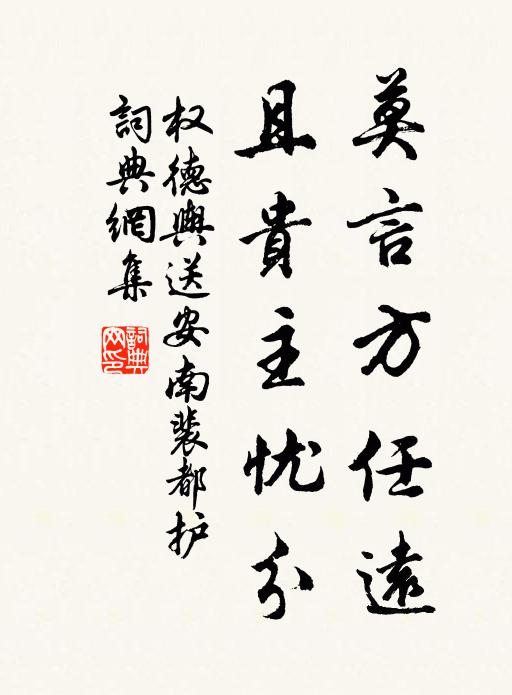 莫言方任遠
且貴主忧分
权德輿送安南裴都护
詞典網集
詞典网印